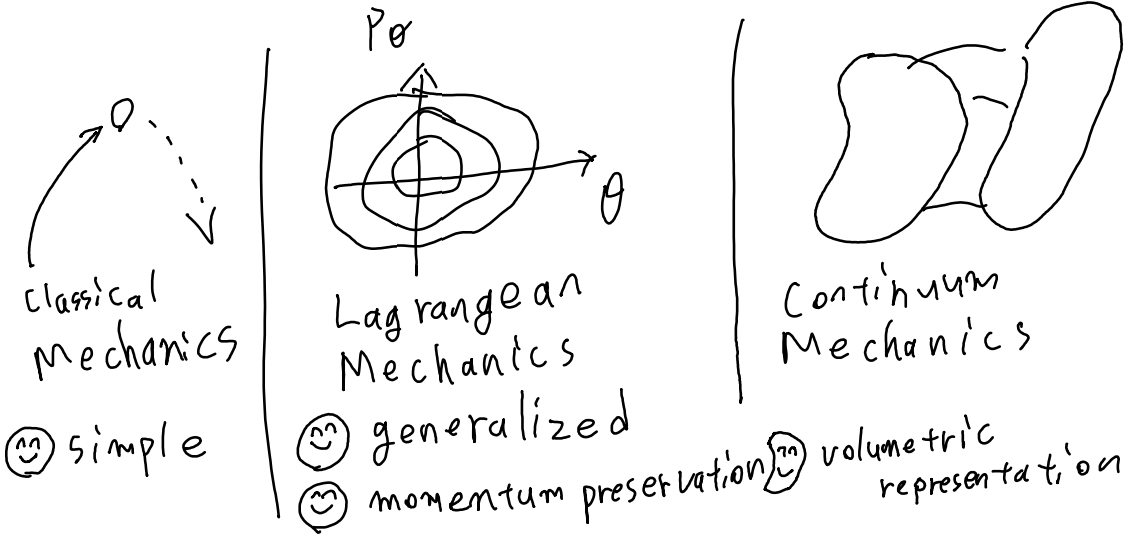 Pθ
θ
Classical
Mechanics
simple
Lagrangean
Mechanics
generalized
momentum preservation
Continuum
Mechanics
volumetric
representation